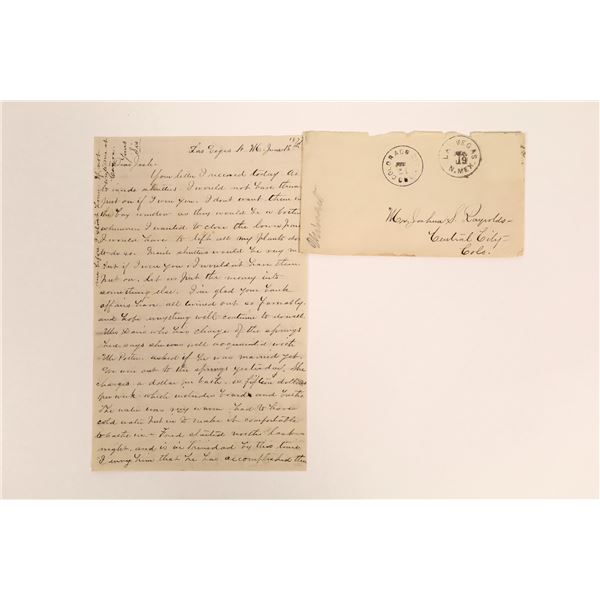 Las Vegas N. M. June 18th
Dear Josh.
Your letter I received today. As
to inside shutters I would not have them
put on if I were you. I don't want them in
the bay window as they would be a bother
whenever I wanted to close the lower
I would have to lift all my plants down
to do so. Inside shutters would be very
but if I were you I wouldn't have them
put on, let us put the money into
something else. I'm glad your bank
affairs have all turned out so favorably,
and hope everything will continue to do well.
Mrs Davis who has charge of the springs
here, says she was well acquainted with
Mr asked if he was married yet.
We were out to the springs yesterday. She
charges a dollar per bath, or fifteen dollars
per week which includes board and baths
The water was very warm had to have
cold water put in to make it comfortable
to bathe in - Fred started north last
night, and is in Trinidad by this time
I envy him that he has accomplished this
COLORADO
LAS VEGAS
19
N. MEX.
Mr Joshua S. Raynolds-
Central City-
Colo.